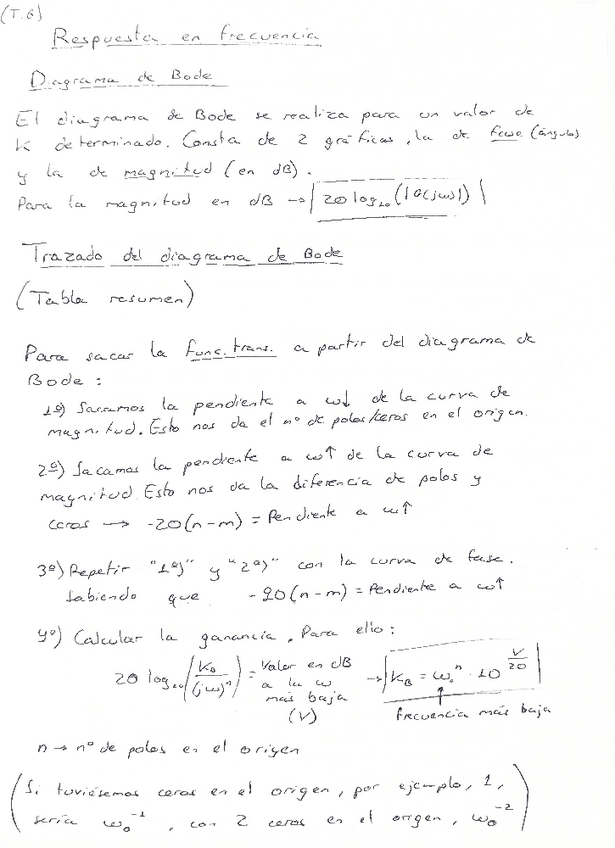 (T.6)
Respuesta en frecuencia
Diagrama de Bode
El diagrama de Bode se realiza para un valor de
K determinado. Consta de 2 gráficas, la de fase (ángulo)
y la de magnitud (en dB).
Para la magnitud en dB → |20 log₁₀(|G(jω)|)|
Trazado del diagrama de Bode
(Tabla resumen)
Para sacar la func. trans. a partir del diagrama de
Bode:
1º) Sacamos la pendiente a ω↓ de la curva de
magnitud. Esto nos da el nº de polos/ceros en el origen.
2º) Sacamos la pendiente a ω↑ de la curva de
magnitud. Esto nos da la diferencia de polos y
ceros → -20(n-m) = Pendiente a ω↑
3º) Repetir "1º)" y "2º)" con la curva de fase.
Sabiendo que -90(n-m) = Pendiente a ω↑
4º) Calcular la ganancia. Para ello:
20 log₁₀|K_B/(jω)ⁿ| = Valor en dB a la ω más baja (V) → |K_B = ω₀ⁿ · 10^(V/20)|
frecuencia más baja
n → nº de polos en el origen
(Si tuviésemos ceros en el origen, por ejemplo, 1,
sería ω₀⁻¹, con 2 ceros en el origen, ω₀⁻²)